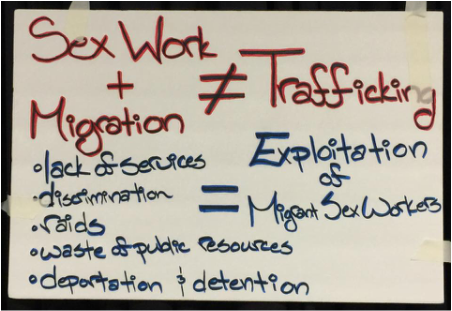 Sex Work
+
Migration
≠ Trafficking
• lack of services
• discrimination
• raids
• waste of public resources
• deportation & detention
= Exploitation
of
Migrant Sex Workers